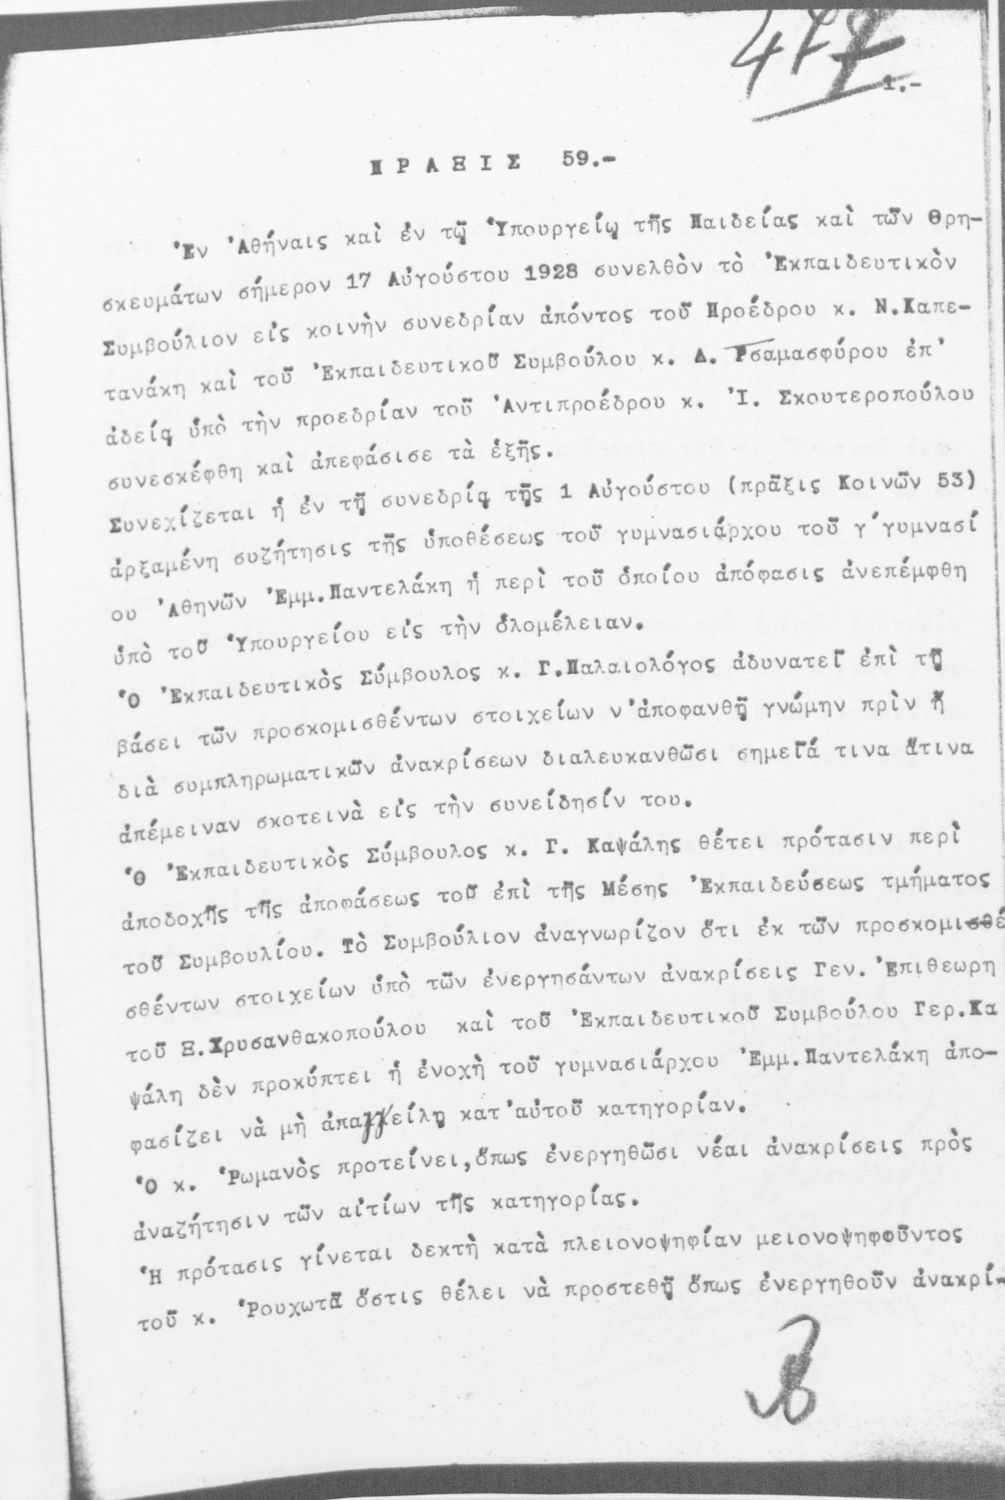 477
1.-
ΠΡΑΞΙΣ 59.-
Ἐν Ἀθήναις καὶ ἐν τῷ Ὑπουργείῳ τῆς Παιδείας καὶ τῶν Θρη-
σκευμάτων σήμερον 17 Αὐγούστου 1928 συνελθὸν τὸ Ἐκπαιδευτικὸν
Συμβούλιον εἰς κοινὴν συνεδρίαν ἀπόντος τοῦ Προέδρου κ. Ν.Καπε-
τανάκη καὶ τοῦ Ἐκπαιδευτικοῦ Συμβούλου κ. Δ. Ρσαμασφύρου ἐπ'
ἀδείᾳ ὑπὸ τὴν προεδρίαν τοῦ Ἀντιπροέδρου κ. Ἰ. Σκουτεροπούλου
συνεσκέφθη καὶ ἀπεφάσισε τὰ ἑξῆς.
Συνεχίζεται ἡ ἐν τῇ συνεδρίᾳ τῆς 1 Αὐγούστου (πρᾶξις Κοινῶν 53)
ἀρξαμένη συζήτησις τῆς ὑποθέσεως τοῦ γυμνασιάρχου τοῦ γ΄γυμνασί
ου Ἀθηνῶν Ἐμμ.Παντελάκη ἡ περὶ τοῦ ὁποίου ἀπόφασις ἀνεπέμφθη
ὑπὸ τοῦ Ὑπουργείου εἰς τὴν ὁλομέλειαν.
Ὁ Ἐκπαιδευτικὸς Σύμβουλος κ. Γ.Παλαιολόγος ἀδυνατεῖ ἐπὶ τῇ
βάσει τῶν προσκομισθέντων στοιχείων ν'ἀποφανθῇ γνώμην πρὶν ἢ
διὰ συμπληρωματικῶν ἀνακρίσεων διαλευκανθῶσι σημεῖά τινα ἅτινα
ἀπέμειναν σκοτεινὰ εἰς τὴν συνείδησίν του.
Ὁ Ἐκπαιδευτικὸς Σύμβουλος κ. Γ. Καψάλης θέτει πρότασιν περὶ
ἀποδοχῆς τῆς ἀποφάσεως τοῦ ἐπὶ τῆς Μέσης Ἐκπαιδεύσεως τμήματος
τοῦ Συμβουλίου. Τὸ Συμβούλιον ἀναγνωρίζον ὅτι ἐκ τῶν προσκομισθέ
σθέντων στοιχείων ὑπὸ τῶν ἐνεργησάντων ἀνακρίσεις Γεν.Ἐπιθεωρη
τοῦ Ξ.Χρυσανθακοπούλου καὶ τοῦ Ἐκπαιδευτικοῦ Συμβούλου Γερ.Κα
ψάλη δὲν προκύπτει ἡ ἐνοχὴ τοῦ γυμνασιάρχου Ἐμμ.Παντελάκη ἀπο-
φασίζει νὰ μὴ ἀπαγγείλῃ κατ'αὐτοῦ κατηγορίαν.
Ὁ κ. Ῥωμανὸς προτείνει,ὅπως ἐνεργηθῶσι νέαι ἀνακρίσεις πρὸς
ἀναζήτησιν τῶν αἰτίων τῆς κατηγορίας.
Ἡ πρότασις γίνεται δεκτὴ κατὰ πλειονοψηφίαν μειονοψηφοῦντος
τοῦ κ. Ῥουχωτᾶ ὅστις θέλει νὰ προστεθῇ ὅπως ἐνεργηθοῦν ἀνακρί-